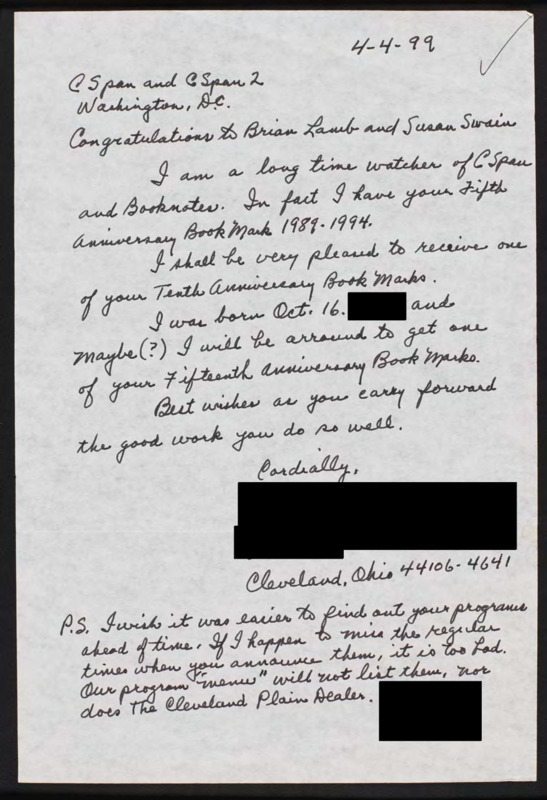 4-4-99
C Span and C Span 2
Washington, D.C.
Congratulations to Brian Lamb and Susan Swain
I am a long time watcher of C Span
and Booknotes. In fact I have your Fifth
Anniversary Book Mark 1989-1994.
I shall be very pleased to receive one
of your Tenth Anniversary Book Marks.
I was born Oct. 16. and
maybe (?) I will be arround to get one
of your Fifteenth Anniversary Book Marks.
Best wishes as you carry forward
the good work you do so well.
Cordially,
Cleveland, Ohio 44106-4641
P.S. I wish it was easier to find out your programs
ahead of time. If I happen to miss the regular
times when you announce them, it is too bad.
Our program "menu" will not list them, nor
does The Cleveland Plain Dealer.